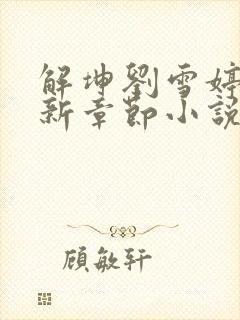 解坤劉雪婷
新章節小說
顾敏轩